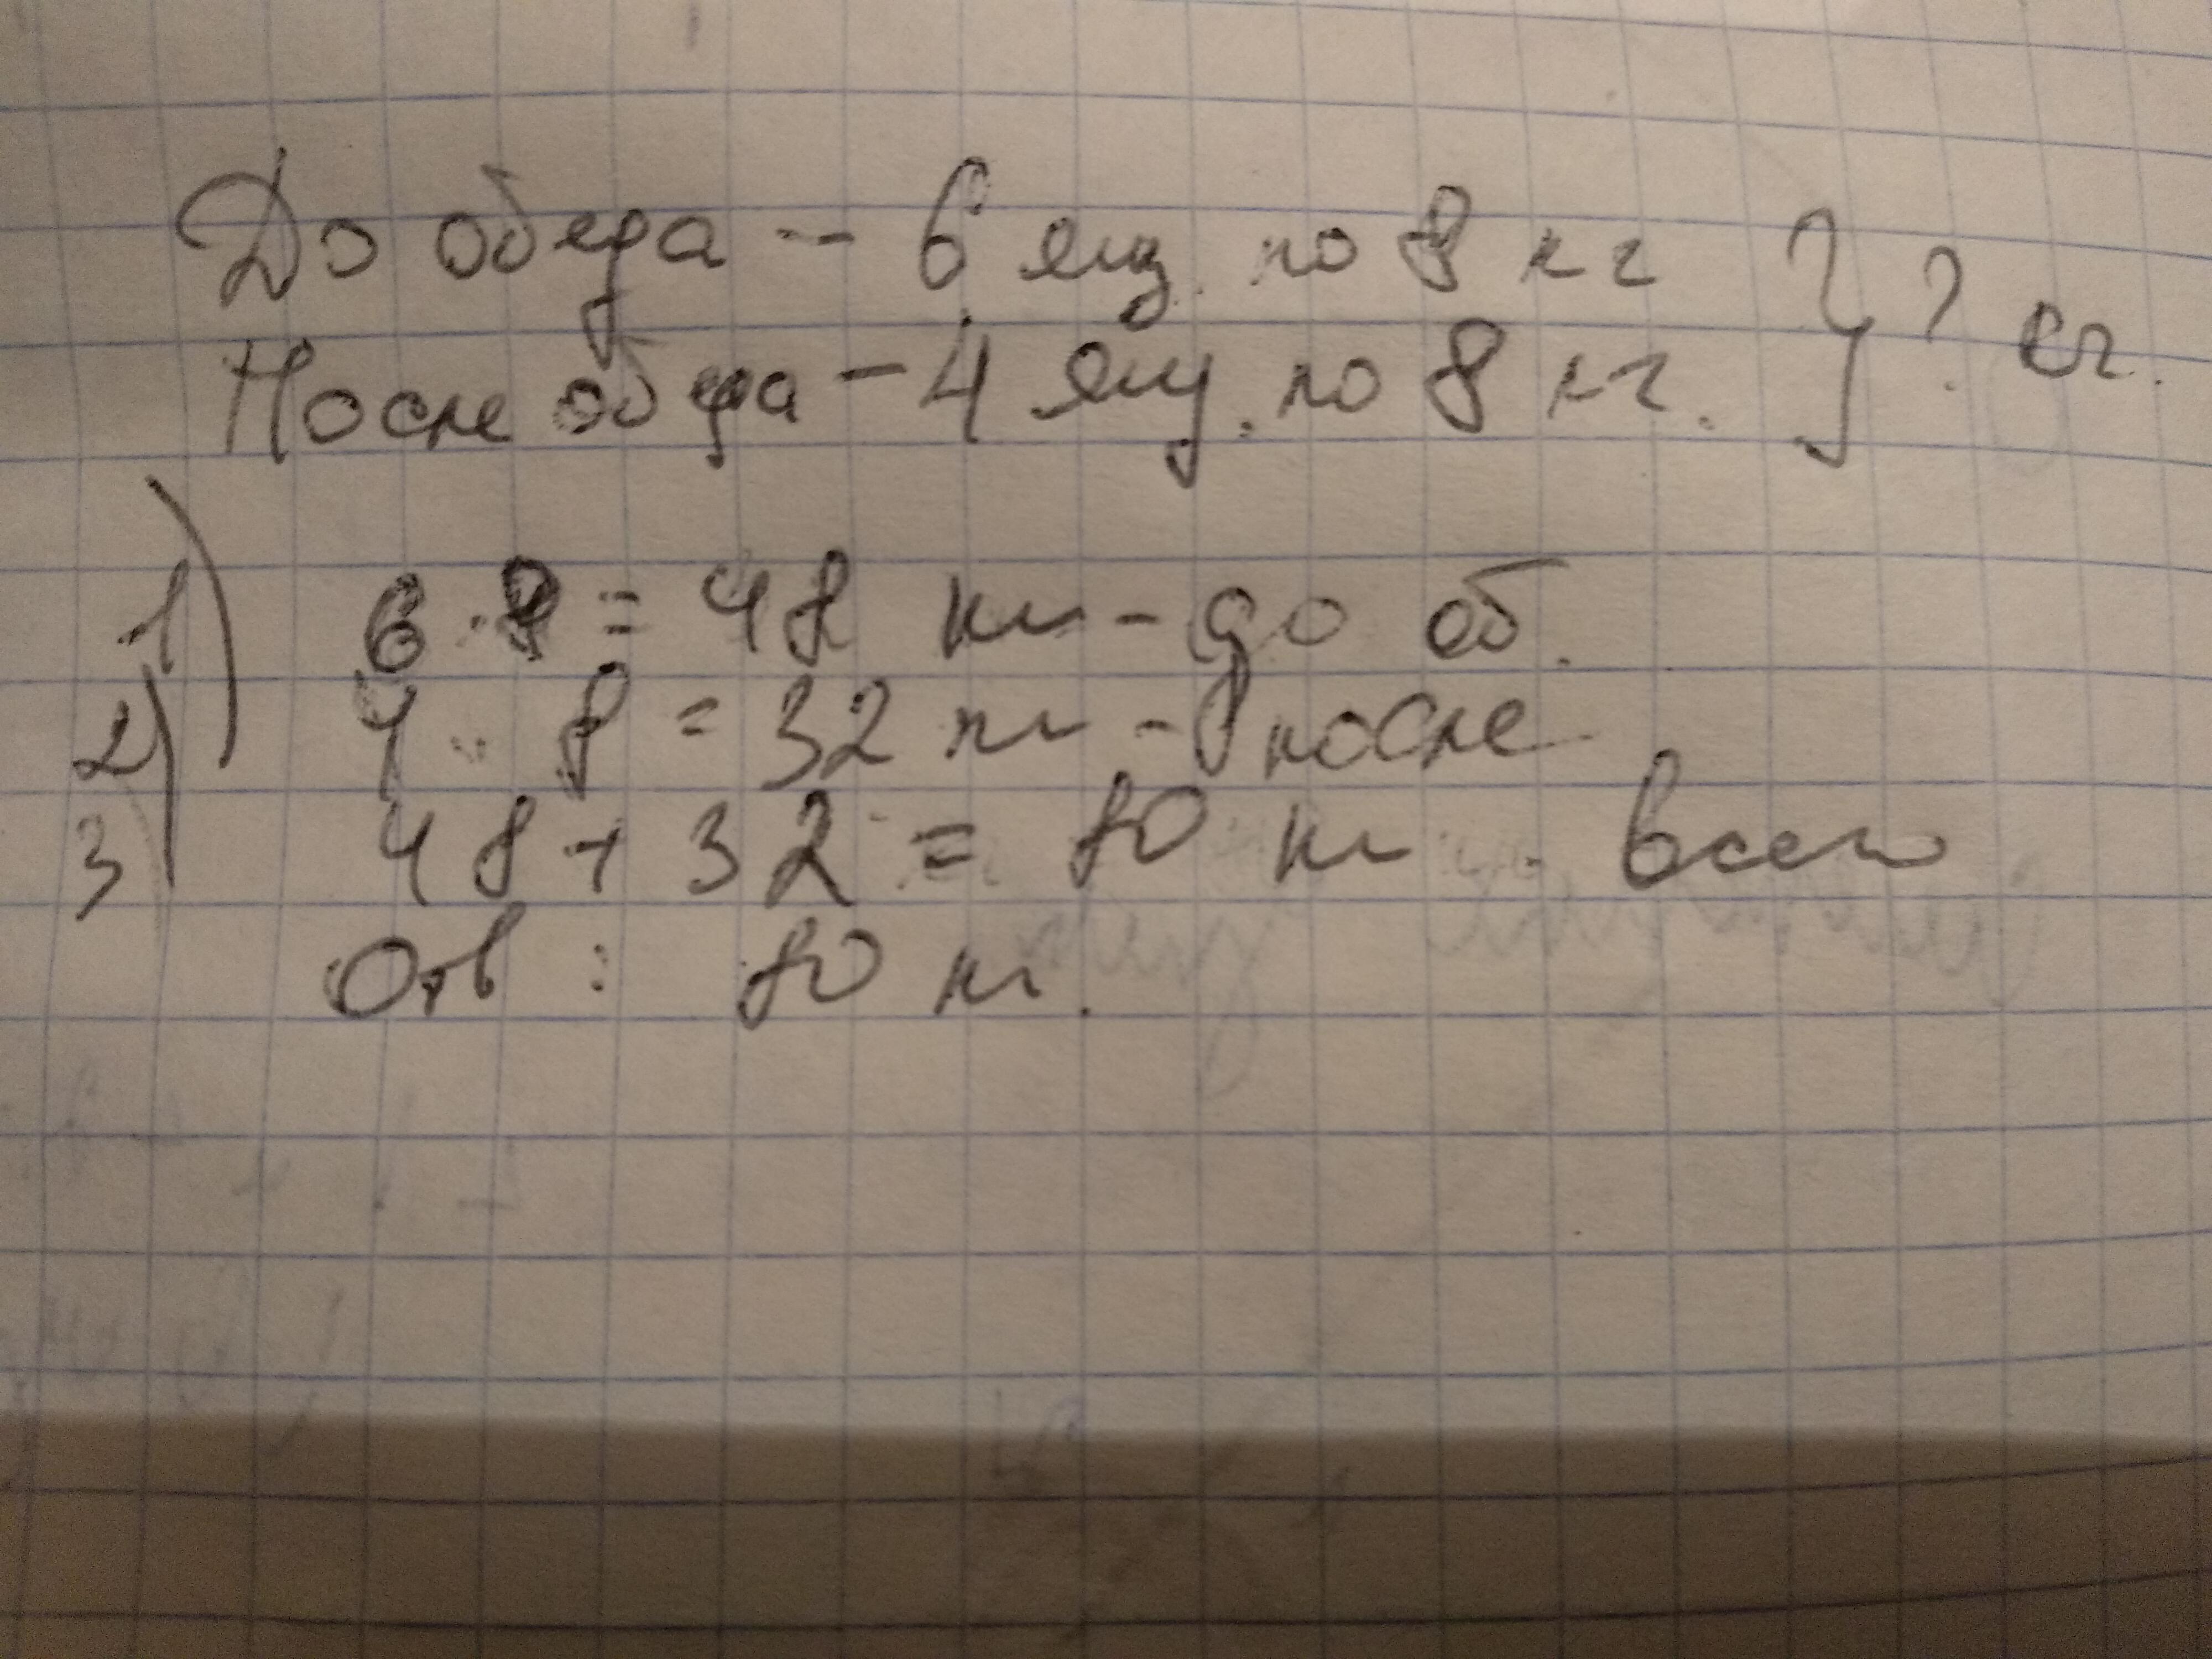 До обеда -- 6 ящ. по 8 кг } ? кг.
После обеда - 4 ящ. по 8 кг.
1) 6 · 8 = 48 кг - до об.
2) 4 · 8 = 32 кг - после
3) 48 + 32 = 80 кг - всего
Отв : 80 кг.